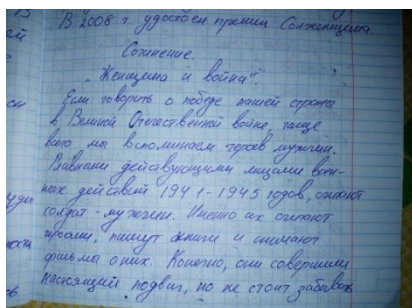 В 2008 г. удостоен премии Солженицына
Сочинение.
"Женщина и война".
Если говорить о победе нашей страны
в Великой Отечественной войне, чаще
всего мы вспоминаем героев мужчин.
Главными действующими лицами воен-
ных действий 1941-1945 годов, считают
солдат-мужчин. Именно их считают
героями, пишут книги и снимают
фильмы о них. Конечно, они совершили
настоящий подвиг, но не стоит забывать